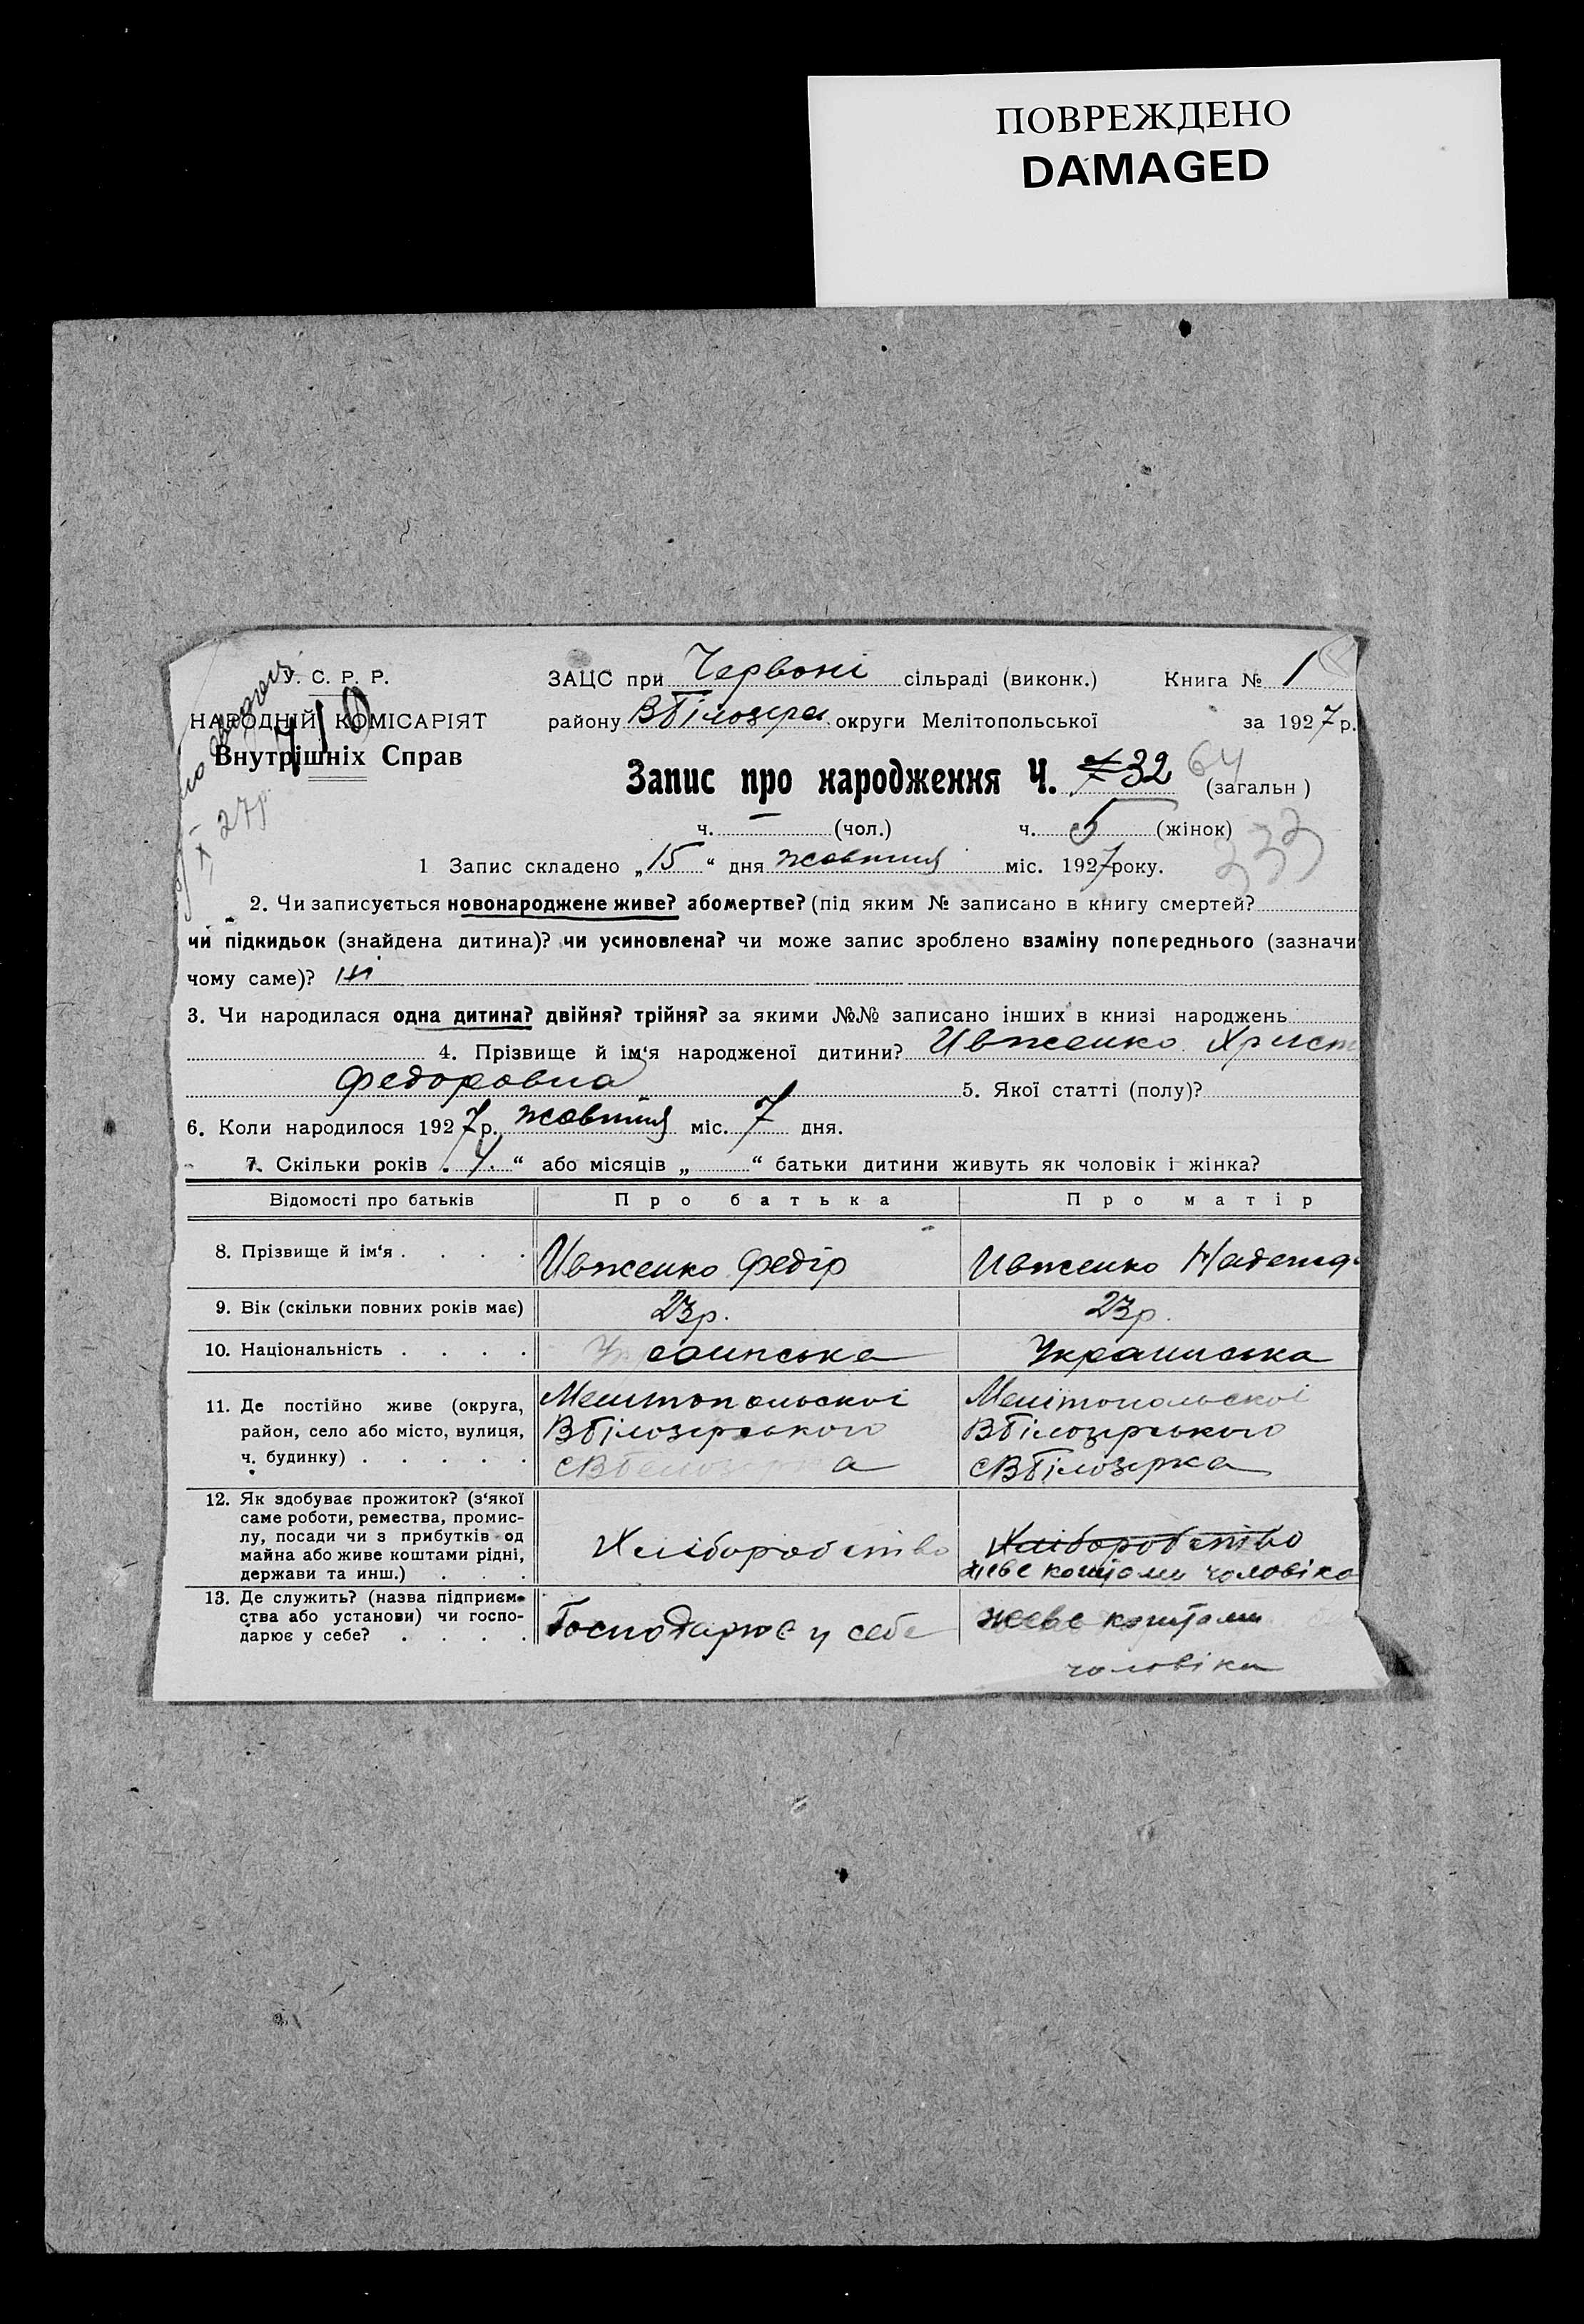 ПОВРЕЖДЕНО
DAMAGED
У. С. Р. Р.
НАРОДНІЙ КОМІСАРІЯТ
Внутрішніх Справ
410
27р.
ЗАЦС при Червоні сільраді (виконк.) Книга № 1
району ВБілозера округи Мелітопольської за 1927 р.
Запис про народження Ч. 32 64 (загальн)
ч. — (чол.) ч. 5 (жінок)
333
1 Запис складено „15“ дня жовтня міс. 1927 року.
2. Чи записується новонароджене живе? абомертве? (під яким № записано в книгу смертей?
чи підкидьок (знайдена дитина)? чи усиновлена? чи може запис зроблено взаміну попереднього (зазначи
чому саме)? ні
3. Чи народилася одна дитина? двійня? трійня? за якими №№ записано інших в книзі народжень
4. Прізвище й ім‘я народженої дитини? Ивженко Христ
Федоровна 5. Якої статті (полу)?
6. Коли народилося 1927 р. жовтня міс. 7 дня.
7. Скільки років „4“ або місяців „ “ батьки дитини живуть як чоловік і жінка?
Відомості про батьків Про батька Про матір
8. Прізвище й ім‘я . . . . Ивженко Федір Ивженко Надежд
9. Вік (скільки повних років має) 23р. 23р.
10. Національність . . . . Украинська Украинська
11. Де постійно живе (округа, Мелитопольскоі Мелітопольскоі
район, село або місто, вулиця, ВБілозерського ВБілозерського
ч. будинку) . . . . . СВБелозерка СВБілозерка
12. Як здобуває прожиток? (з‘якої
саме роботи, ремества, промис-
лу, посади чи з прибутків од
майна або живе коштами рідні,
держави та инш.) . . .
Хліборобство Хліборобство
живе коштами чоловіка
13. Де служить? (назва підприєм-
ства або установи) чи госпо-
дарює у себе? . . . .
Господарює у себе живе коштами
чоловіка